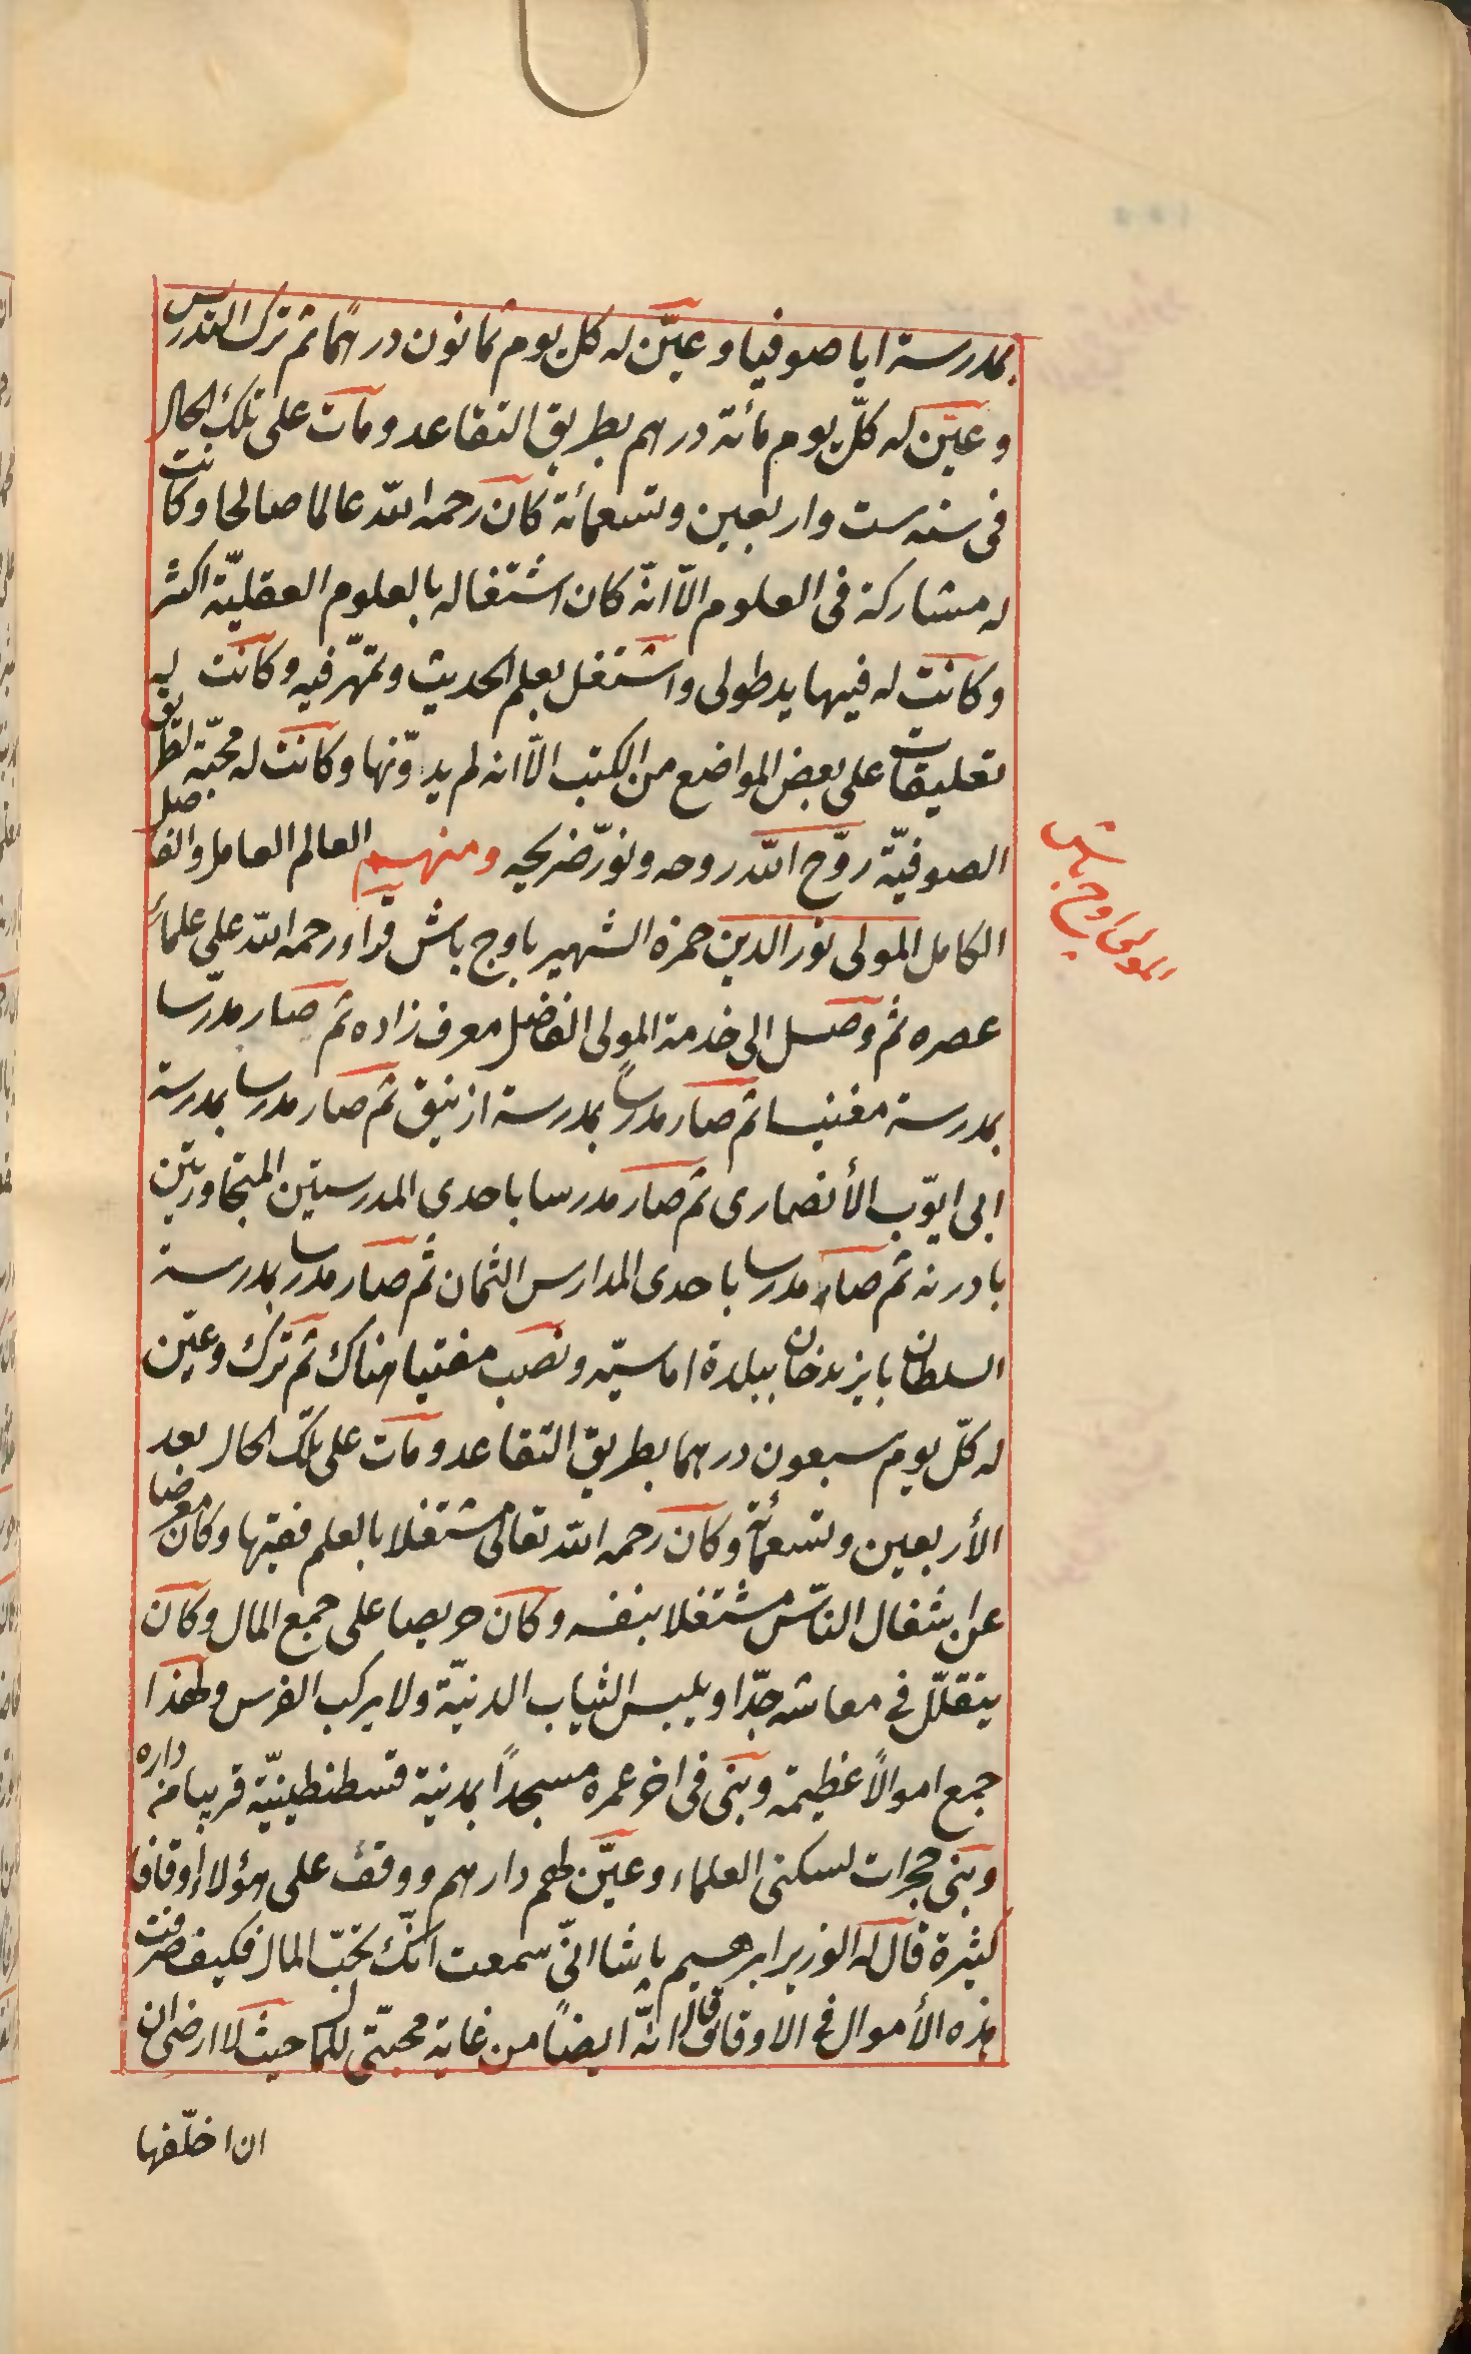 بمدرسة ايا صوفيا وعيّن له كل يوم ثمانون درهمًا ثم ترك التدريس
وعيّن له كلّ يوم مائة درهم بطريق التقاعد ومات على تلك الحال
فى سنه ست واربعين وتسعمائة كان رحمه الله عالما صالحا وكانت
له مشاركة فى العلوم الّا انّه كان اشتغاله بالعلوم العقليّة اكثر
وكانت له فيها يد طولى واشتغل بعلم الحديث وتمهّر فيه وكانت له
تعليقات على بعض المواضع من الكتب الّا انه لم يدوّنها وكانت له محبّة لطريق
الصوفيّة روّح الله روحه ونوّر ضريحه ومنهم العالم العامل والفاضل
الكامل المولى نور الدين حمزه الشهير باوج باش قرا ورحمه الله على علماء
المولى اوج باش
عصره ثم وصل الى خدمة المولى الفاضل معرف زاده ثم صار مدرّسا
بمدرسة مغنيسا ثم صار مدرساً بمدرسة ازنيق ثم صار مدرسا بمدرسة
ابى ايوّب الأنصارى ثم صار مدرسا باحدى المدرستين المتجاورتين
بادرنه ثم صار مدرسا باحدى المدارس الثمان ثم صار مدرسا بمدرسة
السلطان بايزيد خان ببلدة اماسيّه ونصب مفتيا هناك ثم ترك وعيّن
له كلّ يوم سبعون درهما بطريق التقاعد ومات على تلك الحال بعد
الأربعين وتسعمائة وكان رحمه الله تعالى مشتغلا بالعلم فقيها وكان معرضا
عن اشغال النّاس مشتغلا بنفسه وكان حريصا على جمع المال وكان
يتقلّل فى معاشه جدّا ويلبس الثياب الدنيّة ولا يركب الفرس ولهذا
جمع اموالاً عظيمة وبنى فى اخر عمره مسجداً بمدينة قسطنطينيّة قريبا من داره
وبنى حجرات لسكنى العلماء وعيّن لهم دارهم ووقف على هؤلاء أوقافا
كثيرة قال له الوزير ابرهيم پاشا انّى سمعت انّك تحبّ المال فكيف صرفت
هذه الأموال فى الاوقاف قال انّه ايضاً من غاية محبّتى للمال حيث لا ارضى ان
ان اخلّفها